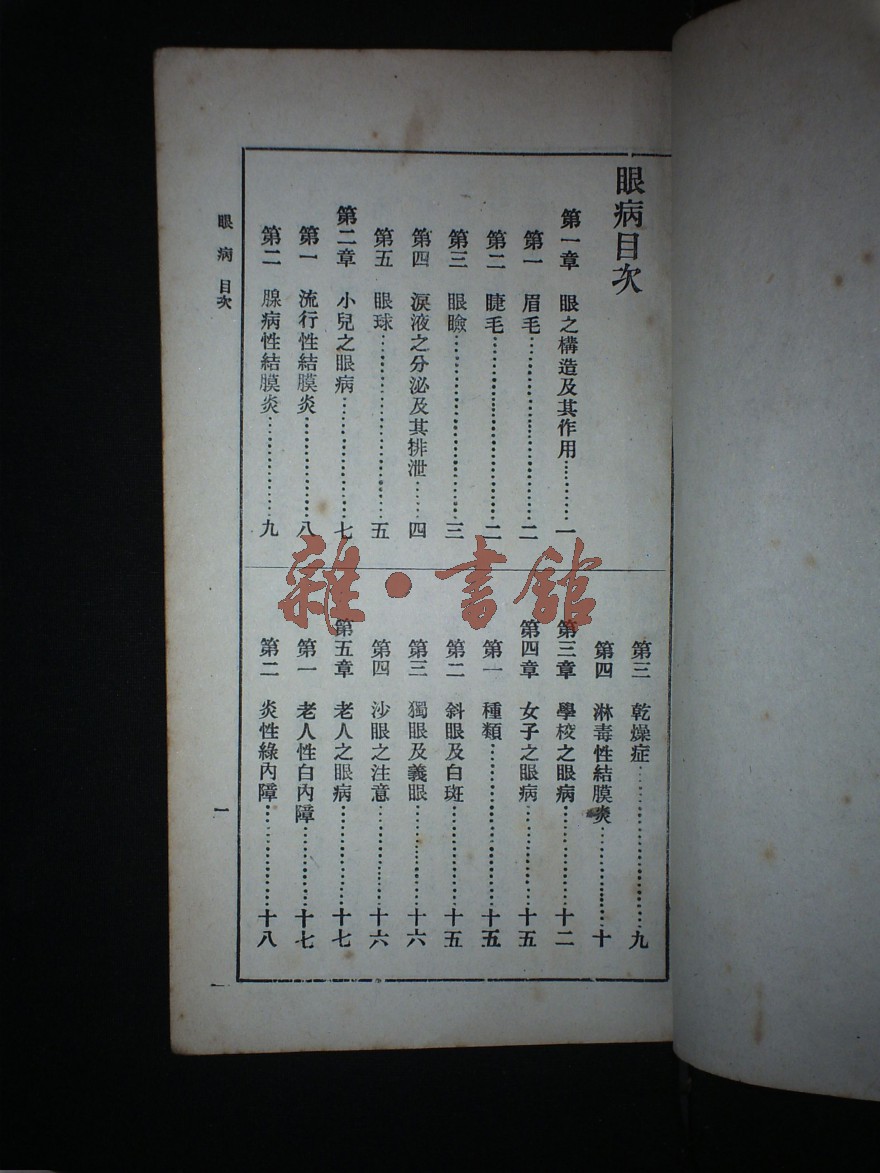 眼病目次
第一章 眼之構造及其作用…………一
第一 眉毛…………二
第二 睫毛…………二
第三 眼瞼…………三
第四 淚液之分泌及其排泄……四
第五 眼球…………五
第二章 小兒之眼病…………七
第一 流行性結膜炎…………八
第二 腺病性結膜炎…………九
第三 乾燥症…………九
第四 淋毒性結膜炎…………十
第三章 學校之眼病…………十二
第四章 女子之眼病…………十五
第一 種類…………十五
第二 斜眼及白斑…………十五
第三 獨眼及義眼…………十六
第四 沙眼之注意…………十六
第五章 老人之眼病…………十七
第一 老人性白內障…………十七
第二 炎性綠內障…………十八
眼病 目次
一
雜·書館